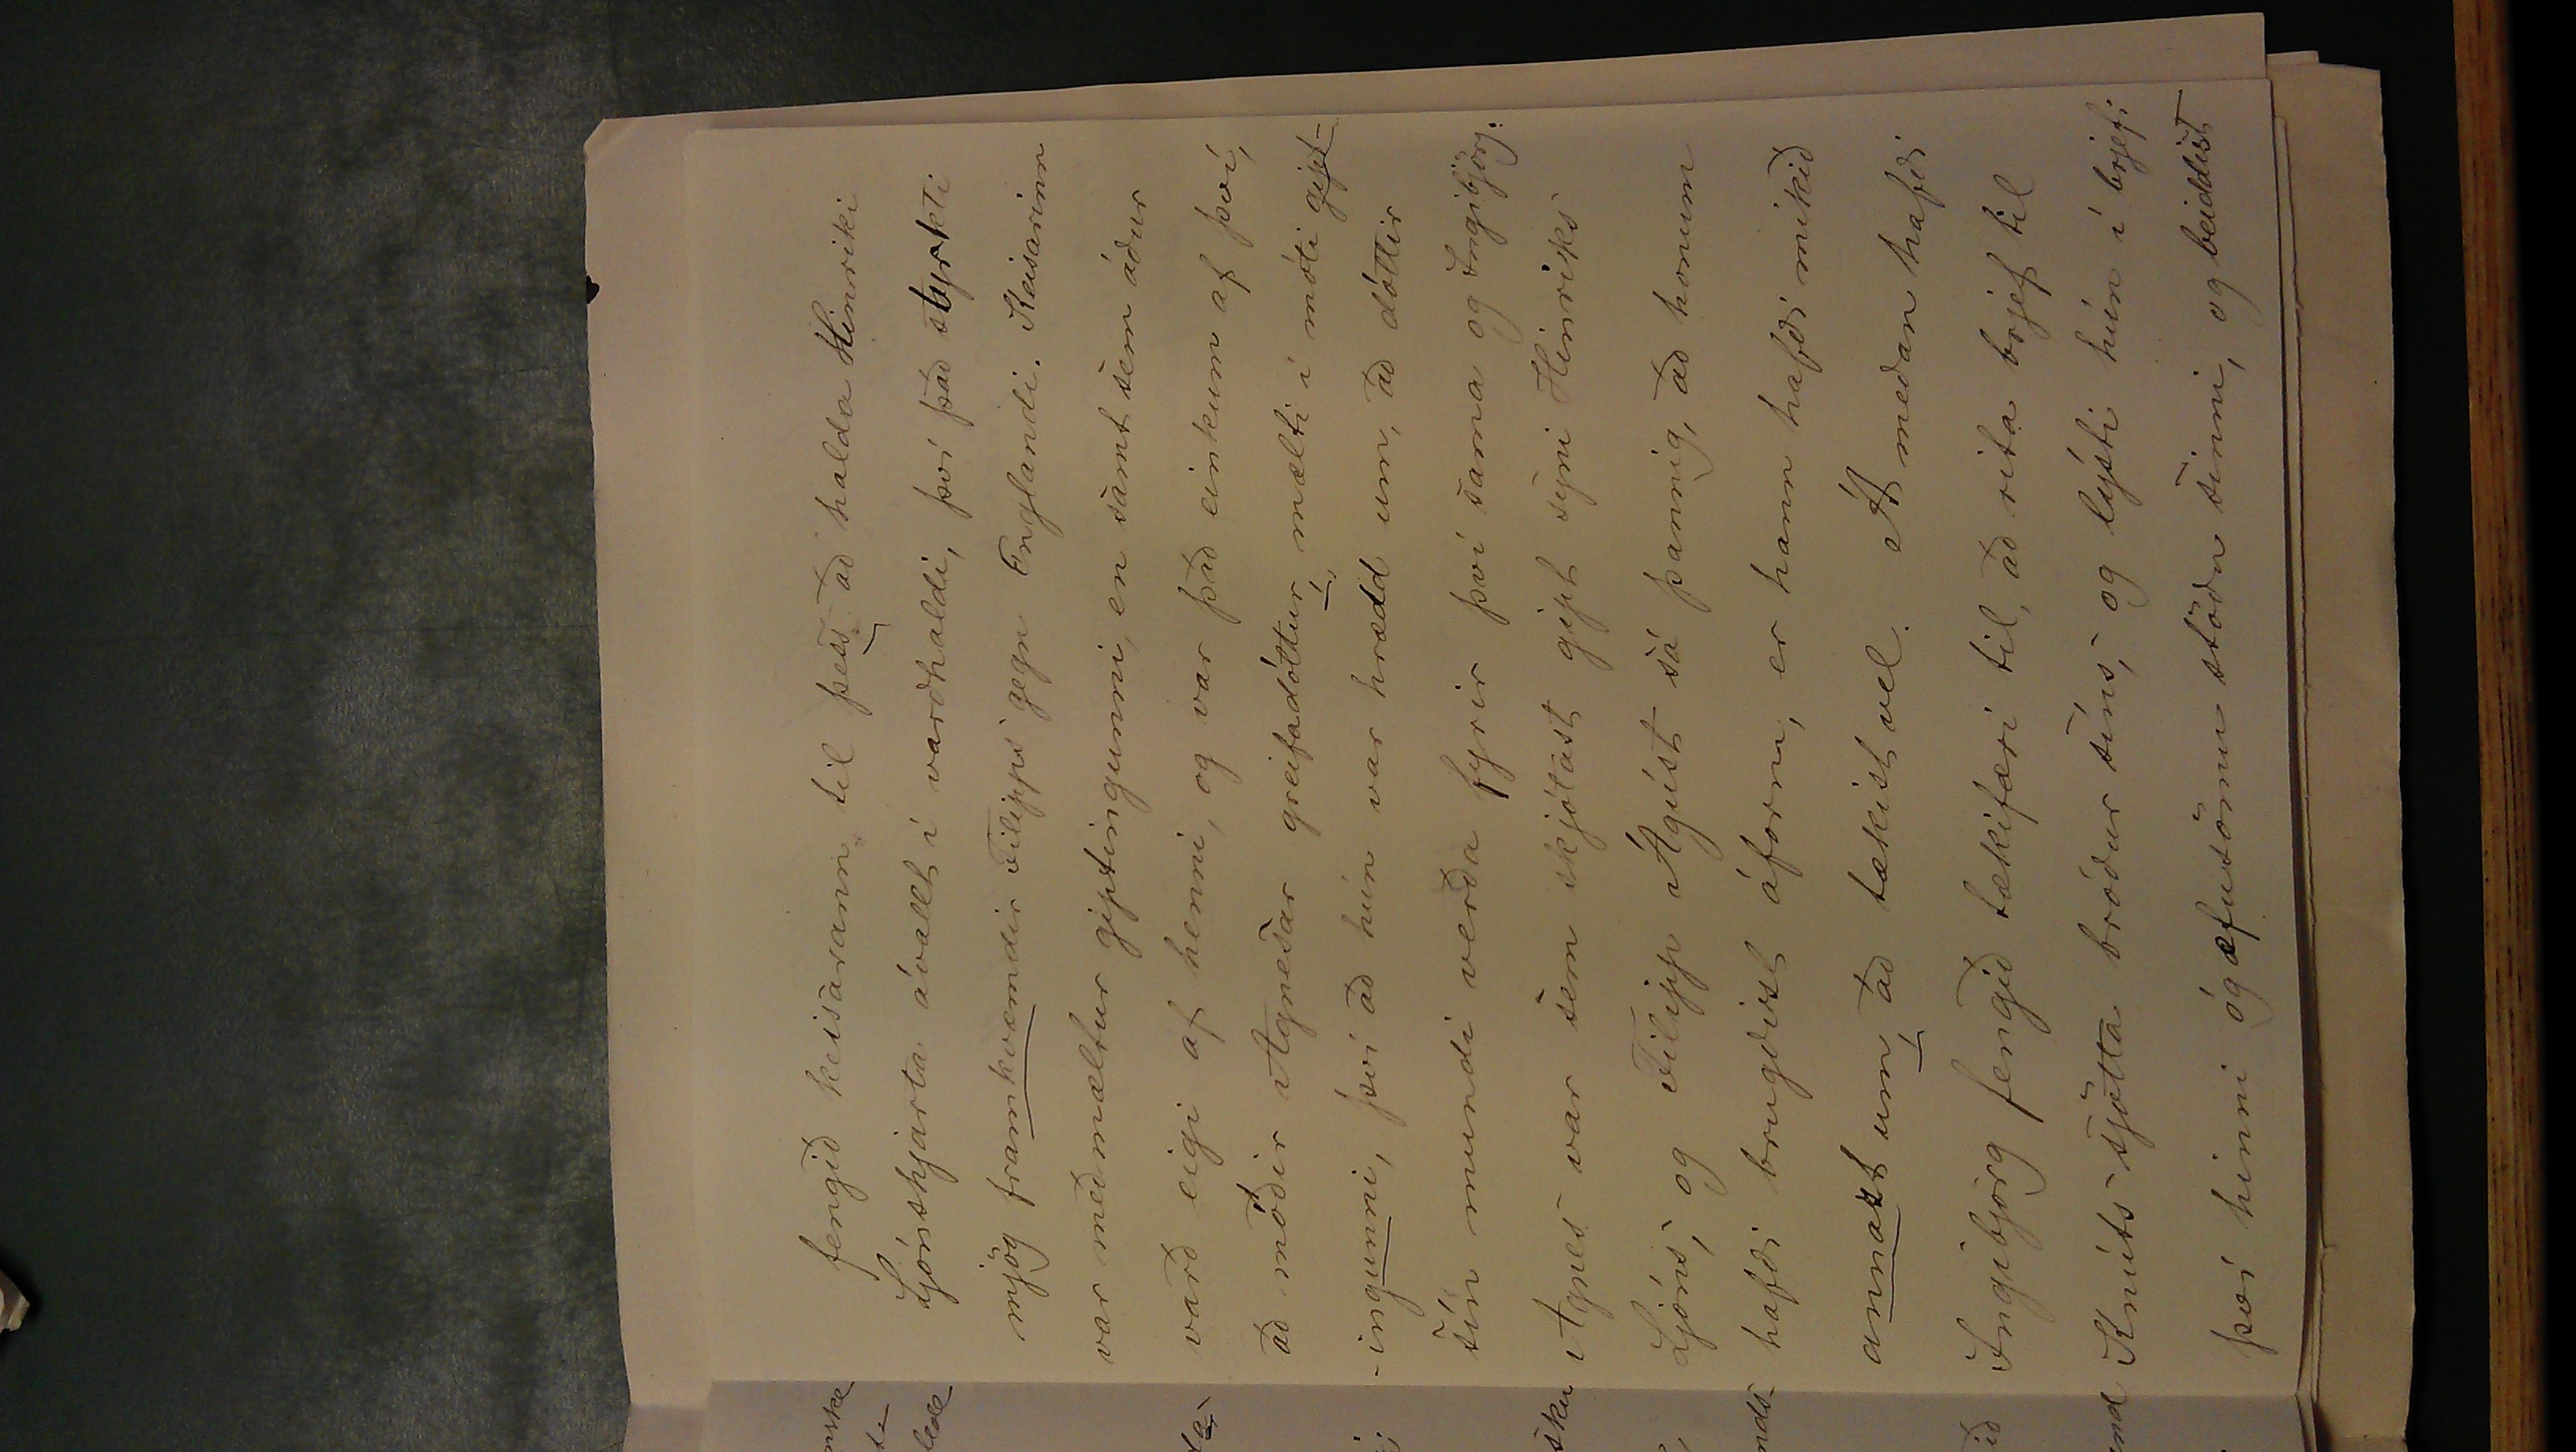 fengið keisarann til þess að halda Hinriki
Ljónshjarta ávallt í varðhaldi, því það styrkti
mjög framkvæmdir Filipps gegn Englandi. Keisarinn
var meðmæltur giptingunni, en samt sem áður
varð eigi af henni, og var það einkum af því,
að móðir Agnesar greifadóttur mælti í móti gipt-
-ingunni, því að hún var hrædd um, að dóttir
sín mundi verða fyrir því sama og Ingibjörg:
Agnes var sem skjótast gipt syni Hinriks
Ljóns; og Filipp Ágúst sá þannig, að honum
hafði brugðist áform, er hann hafði mikið
annazt um, að tækist vel. Á meðan hafði
Ingibjörg fengið tækifæri til, að rita brjef til
Knúts sjötta bróður síns; og lýsti hún í brjefi
því hinni ógæfusömu stöðu sinni, og beiddist